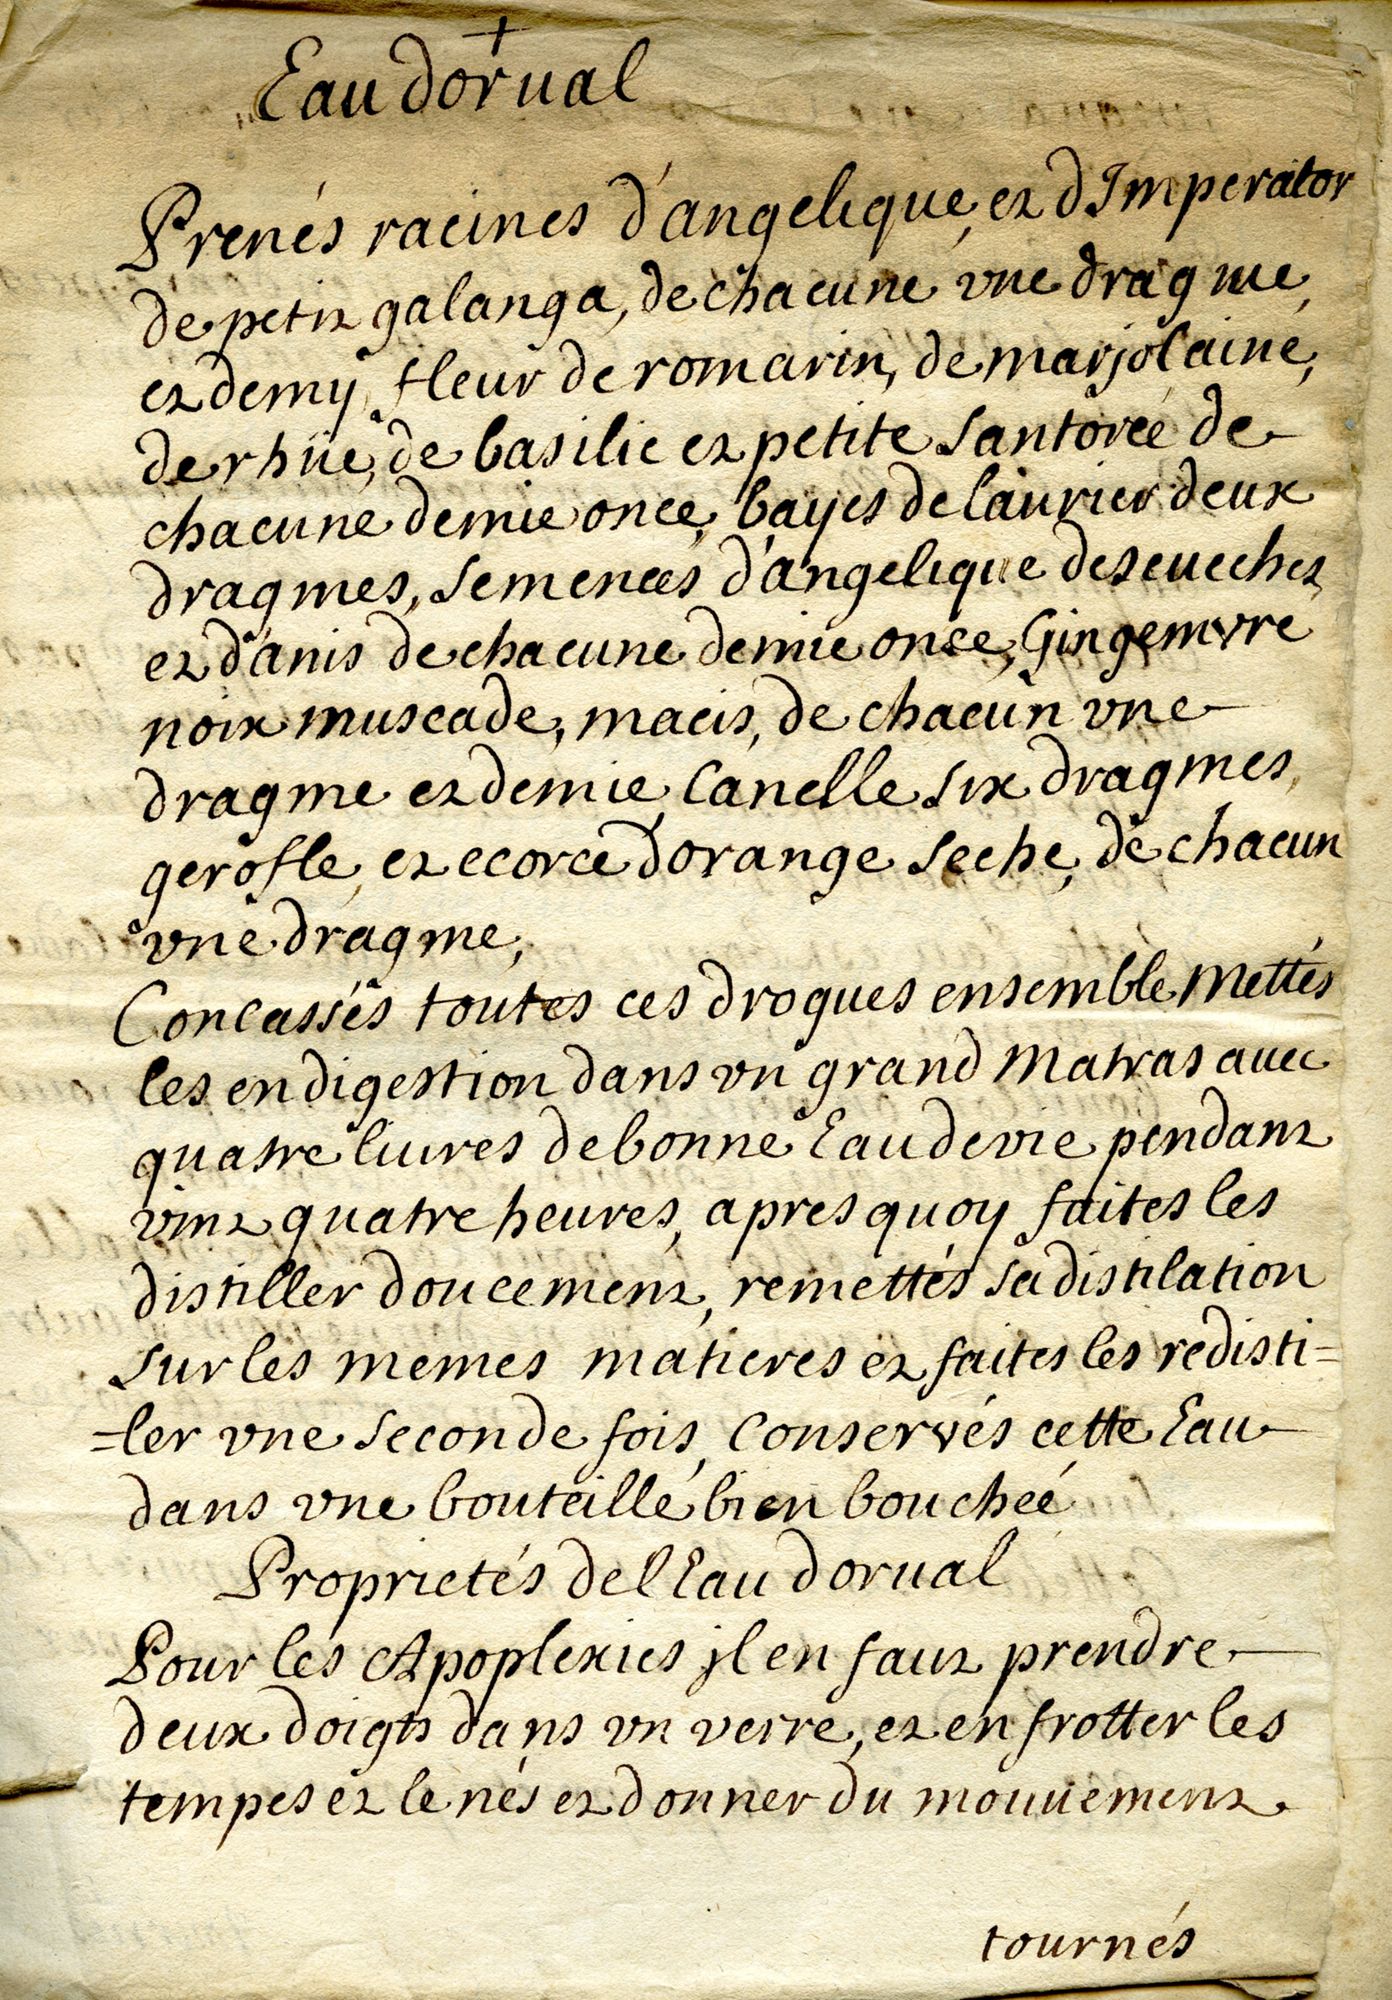 +
Eau dorual
Prenés racines d'angelique, et d'Imperator
de petit galanga, de chacune vne dragme,
et demy, fleur de romarin, de marjolaine,
de rhüe, de basilic et petite santoreé de
chacune demie once, bayes de laurier deux
dragmes, semences d'angelique deseueches
et d'anis de chacune demie once, Gingemvre
noix muscade, macis, de chacun vne
dragme et demie, Canelle six dragmes,
gerofle, et ecorce dorange seche, de chacun
vne dragme,
Concassés toutes ces drogues ensemble, Mettés
les en digestion dans vn grand Matras auec
quatre liures de bonne Eau de vie pendant
vint quatre heures, apres quoy faites les
distiller doucement, remettés sa distilation
sur les memes matieres et faites les redisti=
=ler vne seconde fois, Conservés cette Eau
dans vne bouteille bien boucheé
Proprietés de l'Eau dorual
Pour les Apoplexies jl en faut prendre
deux doigts dans vn verre, et en frotter les
tempes et le nés et donner du mouuement.
tournés